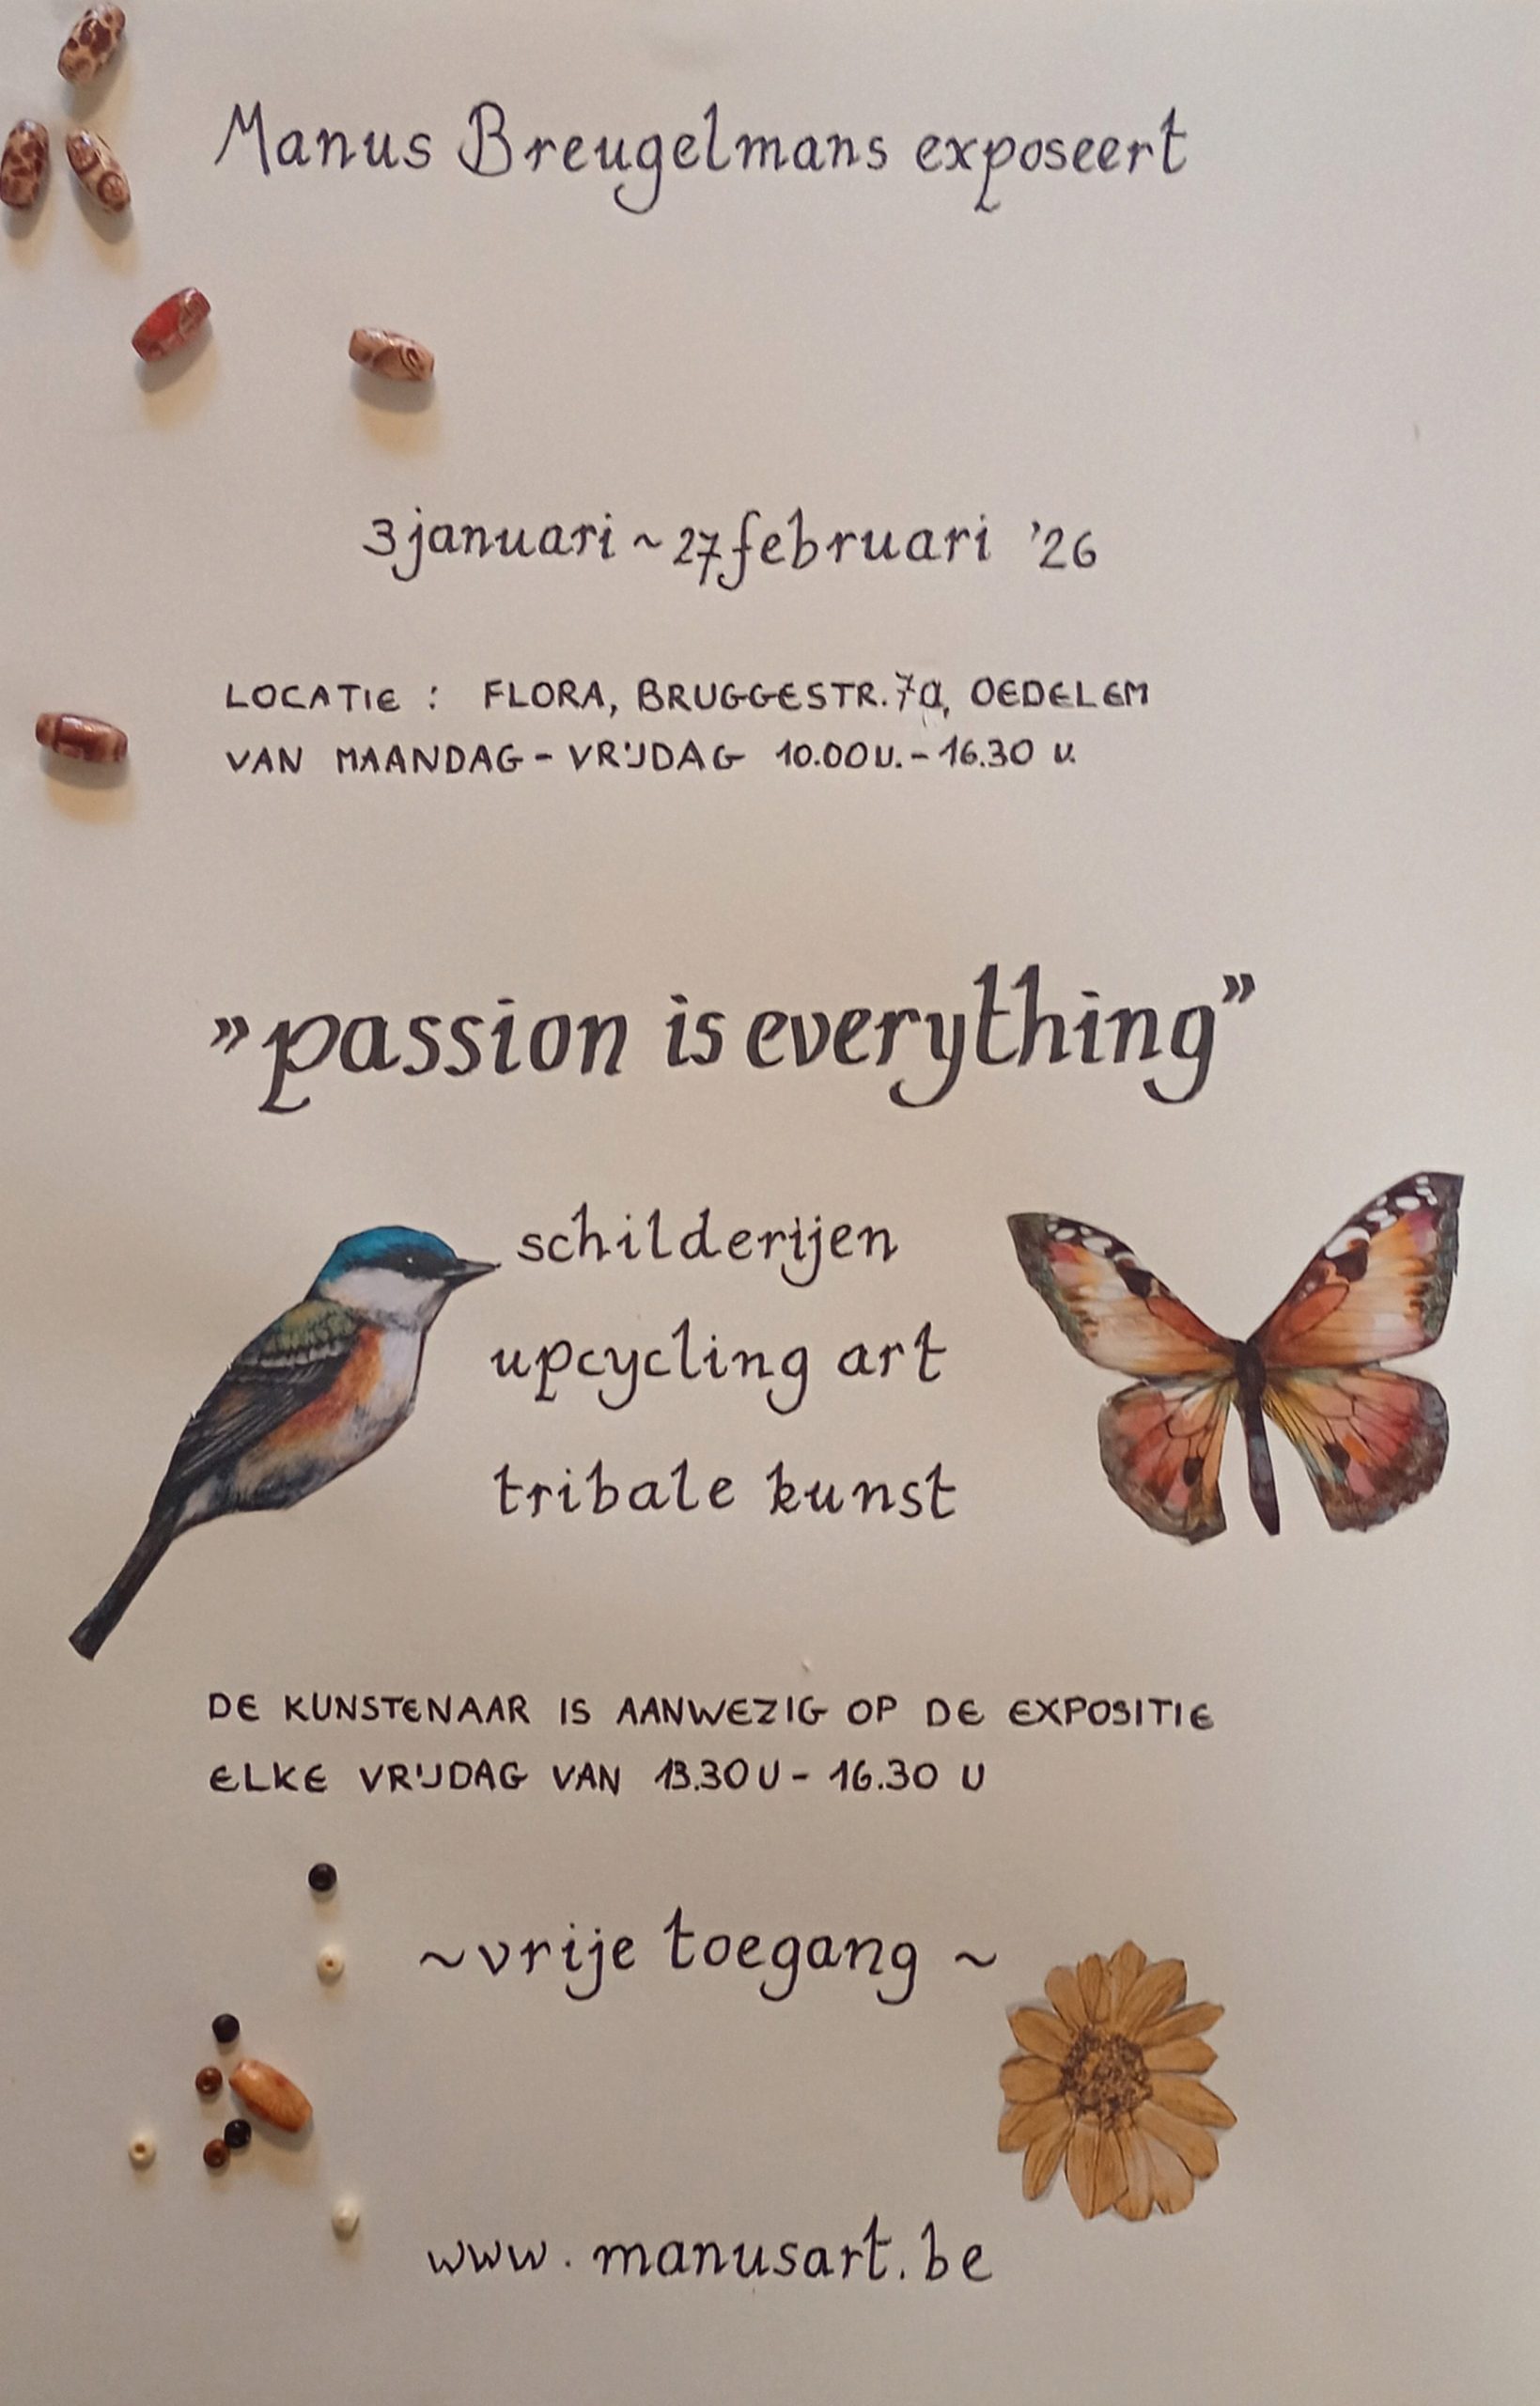 Manus Breugelmans exposeert
3 januari ~ 27 februari '26
LOCATIE : FLORA, BRUGGESTR. 7a, OEDELEM
VAN MAANDAG - VRIJDAG 10.00 U. - 16.30 U.
"passion is everything"
schilderijen
upcycling art
tribale kunst
DE KUNSTENAAR IS AANWEZIG OP DE EXPOSITIE
ELKE VRIJDAG VAN 13.30 U - 16.30 U
~ vrije toegang ~
www.manusart.be